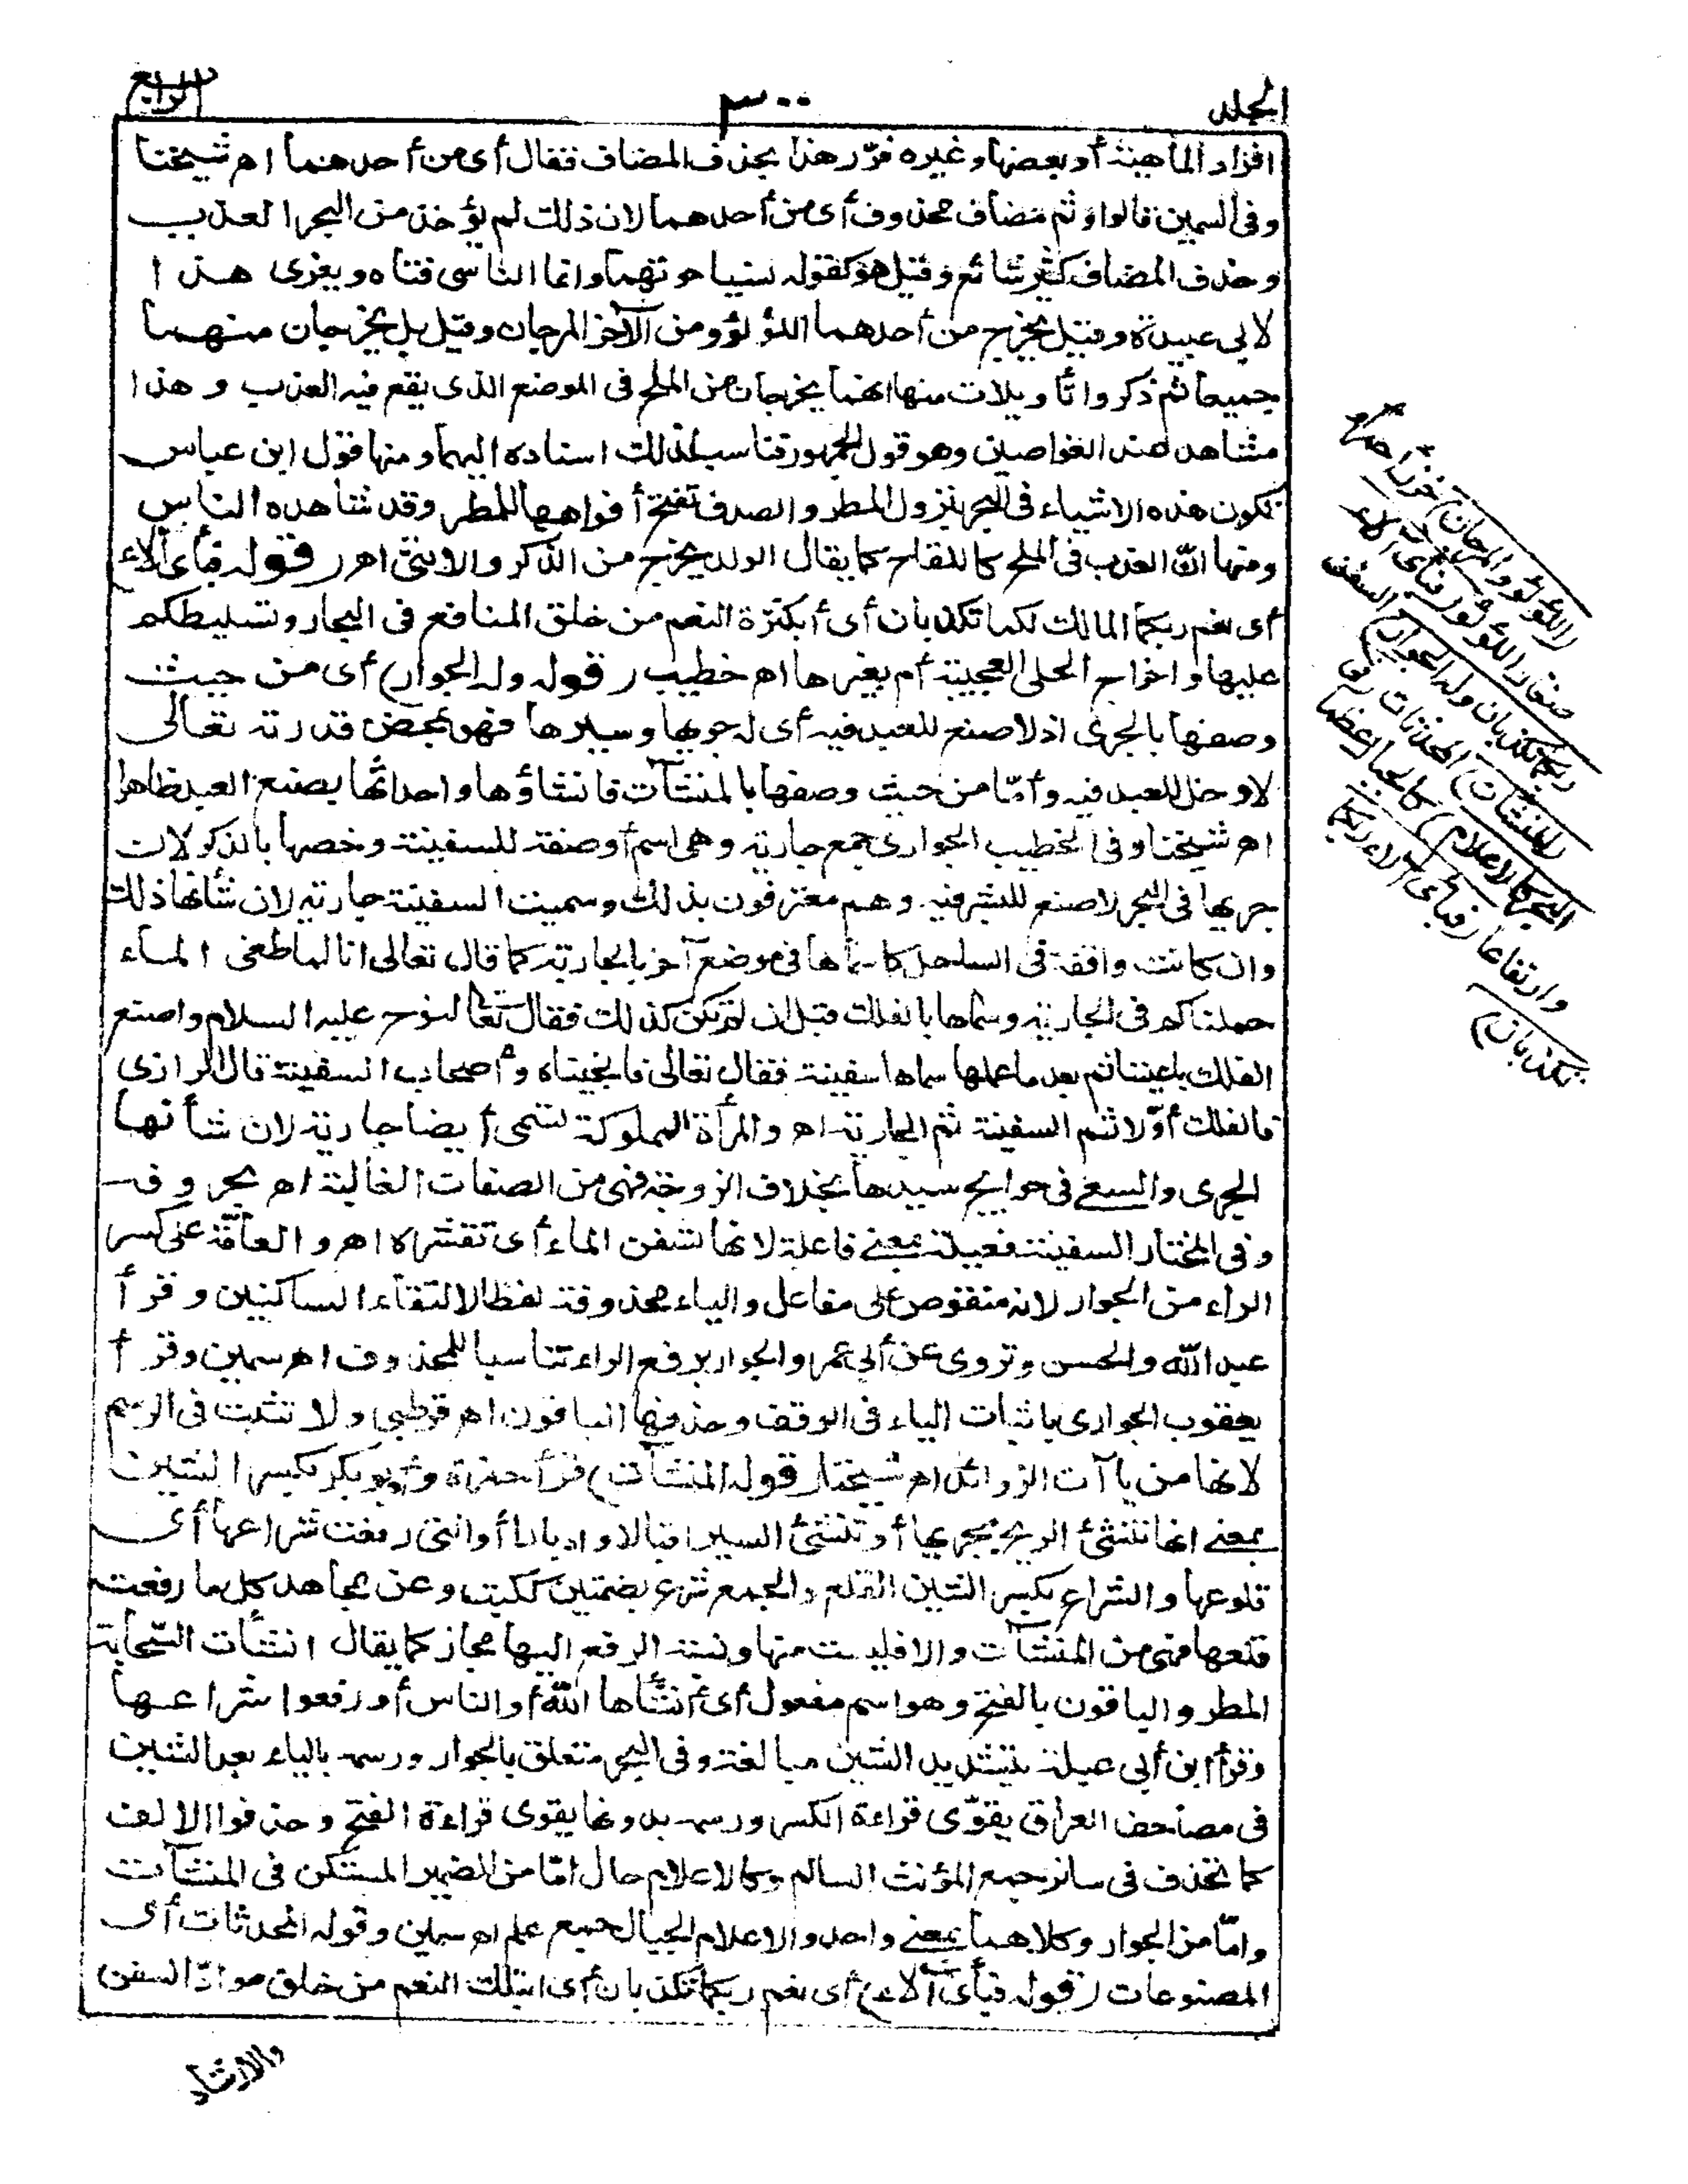 المجلد
٣٠٠
الرابع
افراد الماهية أو بعضها وغيره قرّر هذا بحذف المضاف فقال أى من أحدهما اه شيخنا
وفى السمين قالوا وثم مضاف محذوف أى من أحدهما لان ذلك لم يؤخذ من البحر العذب
وحذف المضاف كثير شائع وقيل هو كقوله نسيا حوتهما وانما الناسى فتاه ويعزى هذا
لابى عبيدة وقيل يخرج من أحدهما اللؤلؤ ومن الآخر المرجان وقيل بل يخرجان منهما
جميعا ثم ذكروا تأويلات منها انهما يخرجان من الملح فى الموضع الذى يقع فيه العذب وهذا
مشاهد عند الغواصين وهو قول الجمهور فناسب لذلك اسناده اليهما ومنها قول ابن عباس
تكون هذه الاشياء فى البحر بنزول المطر والصدف تفتح أفواهها للمطر وقد شاهده الناس
ومنها انّ العذب فى الملح كاللقاح كما يقال الولد يخرج من الذكر والانثى اه (قوله فبأى آلاء)
أى نعم ربكما المالك لكما تكذبان أى أبكثرة النعم من خلق المنافع فى البحار وتسليطكم
عليها واخراج الحلى العجيبة أم بغيرها اه خطيب (قوله وله الجوار) أى من حيث
وصفها بالجرى اذ لا صنع للعبد فيه أى لجريها وسيرها فهو بمحض قدرته تعالى
لا دخل للعبد فيه وأمّا من حيث وصفها بالمنشآت فانشاؤها واحداثها بصنع العبد ظاهرا
اه شيخنا وفى الخطيب الجوارى جمع جارية وهى اسم أو صفة للسفينة وخصها بالذكر لان
جريها فى البحر لا صنع للبشر فيه وهم معترفون بذلك وسميت السفينة جارية لان شأنها ذلك
وان كانت واقفة فى الساحل كما سماها فى موضع آخر بالجارية كما قال تعالى انا لما طغى الماء
حملناكم فى الجارية وسماها بالفلك قبل ان لم تكن كذلك فقال تعالى لنوح عليه السلام واصنع
الفلك باعيننا ثم بعد ما عملها سماها سفينة فقال تعالى فانجيناه وأصحاب السفينة قال الرازى
فالفلك أوّلا ثم السفينة ثم الجارية اه والمرأة المملوكة تسمى أيضا جارية لان شأنها
الجرى والسعى فى حوايج سيدها بخلاف الزوجة فهى من الصفات الغالبة اه بحروفـ
وفى المختار السفينة فعيلة بمعنى فاعلة لانها تسفن الماء أى تقشره اه والعامّة على كسر
الراء من الجوار لانه منقوص على مفاعل والياء محذوفة لفظا لالتقاء الساكنين وقرأ
عبد الله والحسن وتروى عن أبى عمرو الجوار برفع الراء تناسيا للمحذوف اه سمين وقرأ
يعقوب الجوارى باثبات الياء فى الوقف وحذفها الباقون اه قرطبى ولا تثبت فى الرسم
لانها من ياآت الزوائد اه شيخنا (قوله المنشآت) قرأ حمزة وأبو بكر بكسر الشين
بمعنى انها تنشئ الريح بجريها أو تنشئ السير اقبالا وادبارا أو التى رفعت شراعها أى
قلوعها والشراع بكسر الشين القلع والجمع شرع بضمتين ككتب وعن مجاهد كل ما رفعت
قلعها فهى من المنشآت والا فليست منها ونسبة الرفع اليها مجاز كما يقال انشأت السحابة
المطر والباقون بالفتح وهو اسم مفعول أى أنشأها الله أو الناس أو رفعوا شراعها
وقرأ ابن أبى عبلة بتشديد الشين مبالغة وفى البحر متعلق بالجوار ورسمه بالياء بعد الشين
فى مصاحف العراق يقوّى قراءة الكسر ورسمه بدونها يقوى قراءة الفتح وحذفوا الالف
كما تحذف فى سائر جمع المؤنث السالم وكالاعلام حال امّا من الضمير المستكن فى المنشآت
وامّا من الجوار وكلاهما بمعنى واحد والاعلام الجبال جمع علم اه سمين وقوله المحدثات أى
المصنوعات (قوله فبأى آلاء) أى نعم ربكما تكذبان أى ابتلك النعم من خلق موادّ السفن
والارشاد
(اللؤلؤ والمرجان) خرز احمر
صغار اللؤلؤ (فبأى آلاء
ربكما تكذبان وله الجوار) السفن
(المنشآت) المحدثات (فى
البحر كالاعلام) كالجبال عظما
وارتفاعا (فبأى آلاء ربكما
تكذبان)